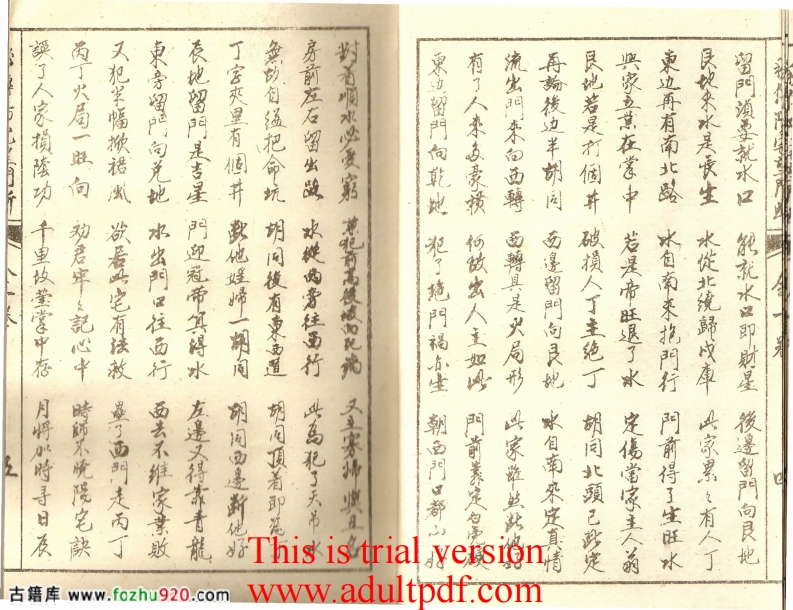 留門須要就水口 能就水口即財星 後邊留門向艮地
艮地來水是長生 水從北繞歸戌庫 此家累々有人丁
東边再有南北路 水自南來抱門行 門前得了生旺水
興家立業在掌中 若是帝旺退了水 定傷當家主人翁
艮地若是打個井 破損人丁主絕丁 胡同北頭已此定
再論後边半胡同 西邊留門向艮地 水自南來定真情
流出門來向西轉 西轉具是火局形 此家雖然
有了人來多豪横 何故出人主如此 門前靠定白虎
東边留門向乾地 犯了絕門禍亦生 朝西門口都以好
四
順水必定窮 其犯前高後 又主寡婦與
房前左右留出路 水從西旁往西行 此為犯了天吊水
無故自縊把命坑 胡同後有東西道 胡同頂着即
丁字夾里有個井 他媳婦一胡同 胡同西邊斷他好
辰地留門是吉星 門迎冠帶算得水 左邊又得靠青龍
東旁留門向兑地 水出門口往西行 西去不維家業敗
又犯半幅掀裙風 欲居此宅有救 壘了西門走丙丁
丙丁火局一旺向 劝君牢々記心中 時師不曉陽宅訣
誤了人家損陰功 千里故業掌中存 月將加時尋日辰
五
This is trial version
www.adultpdf.com
古籍库：www.fozhu920.com